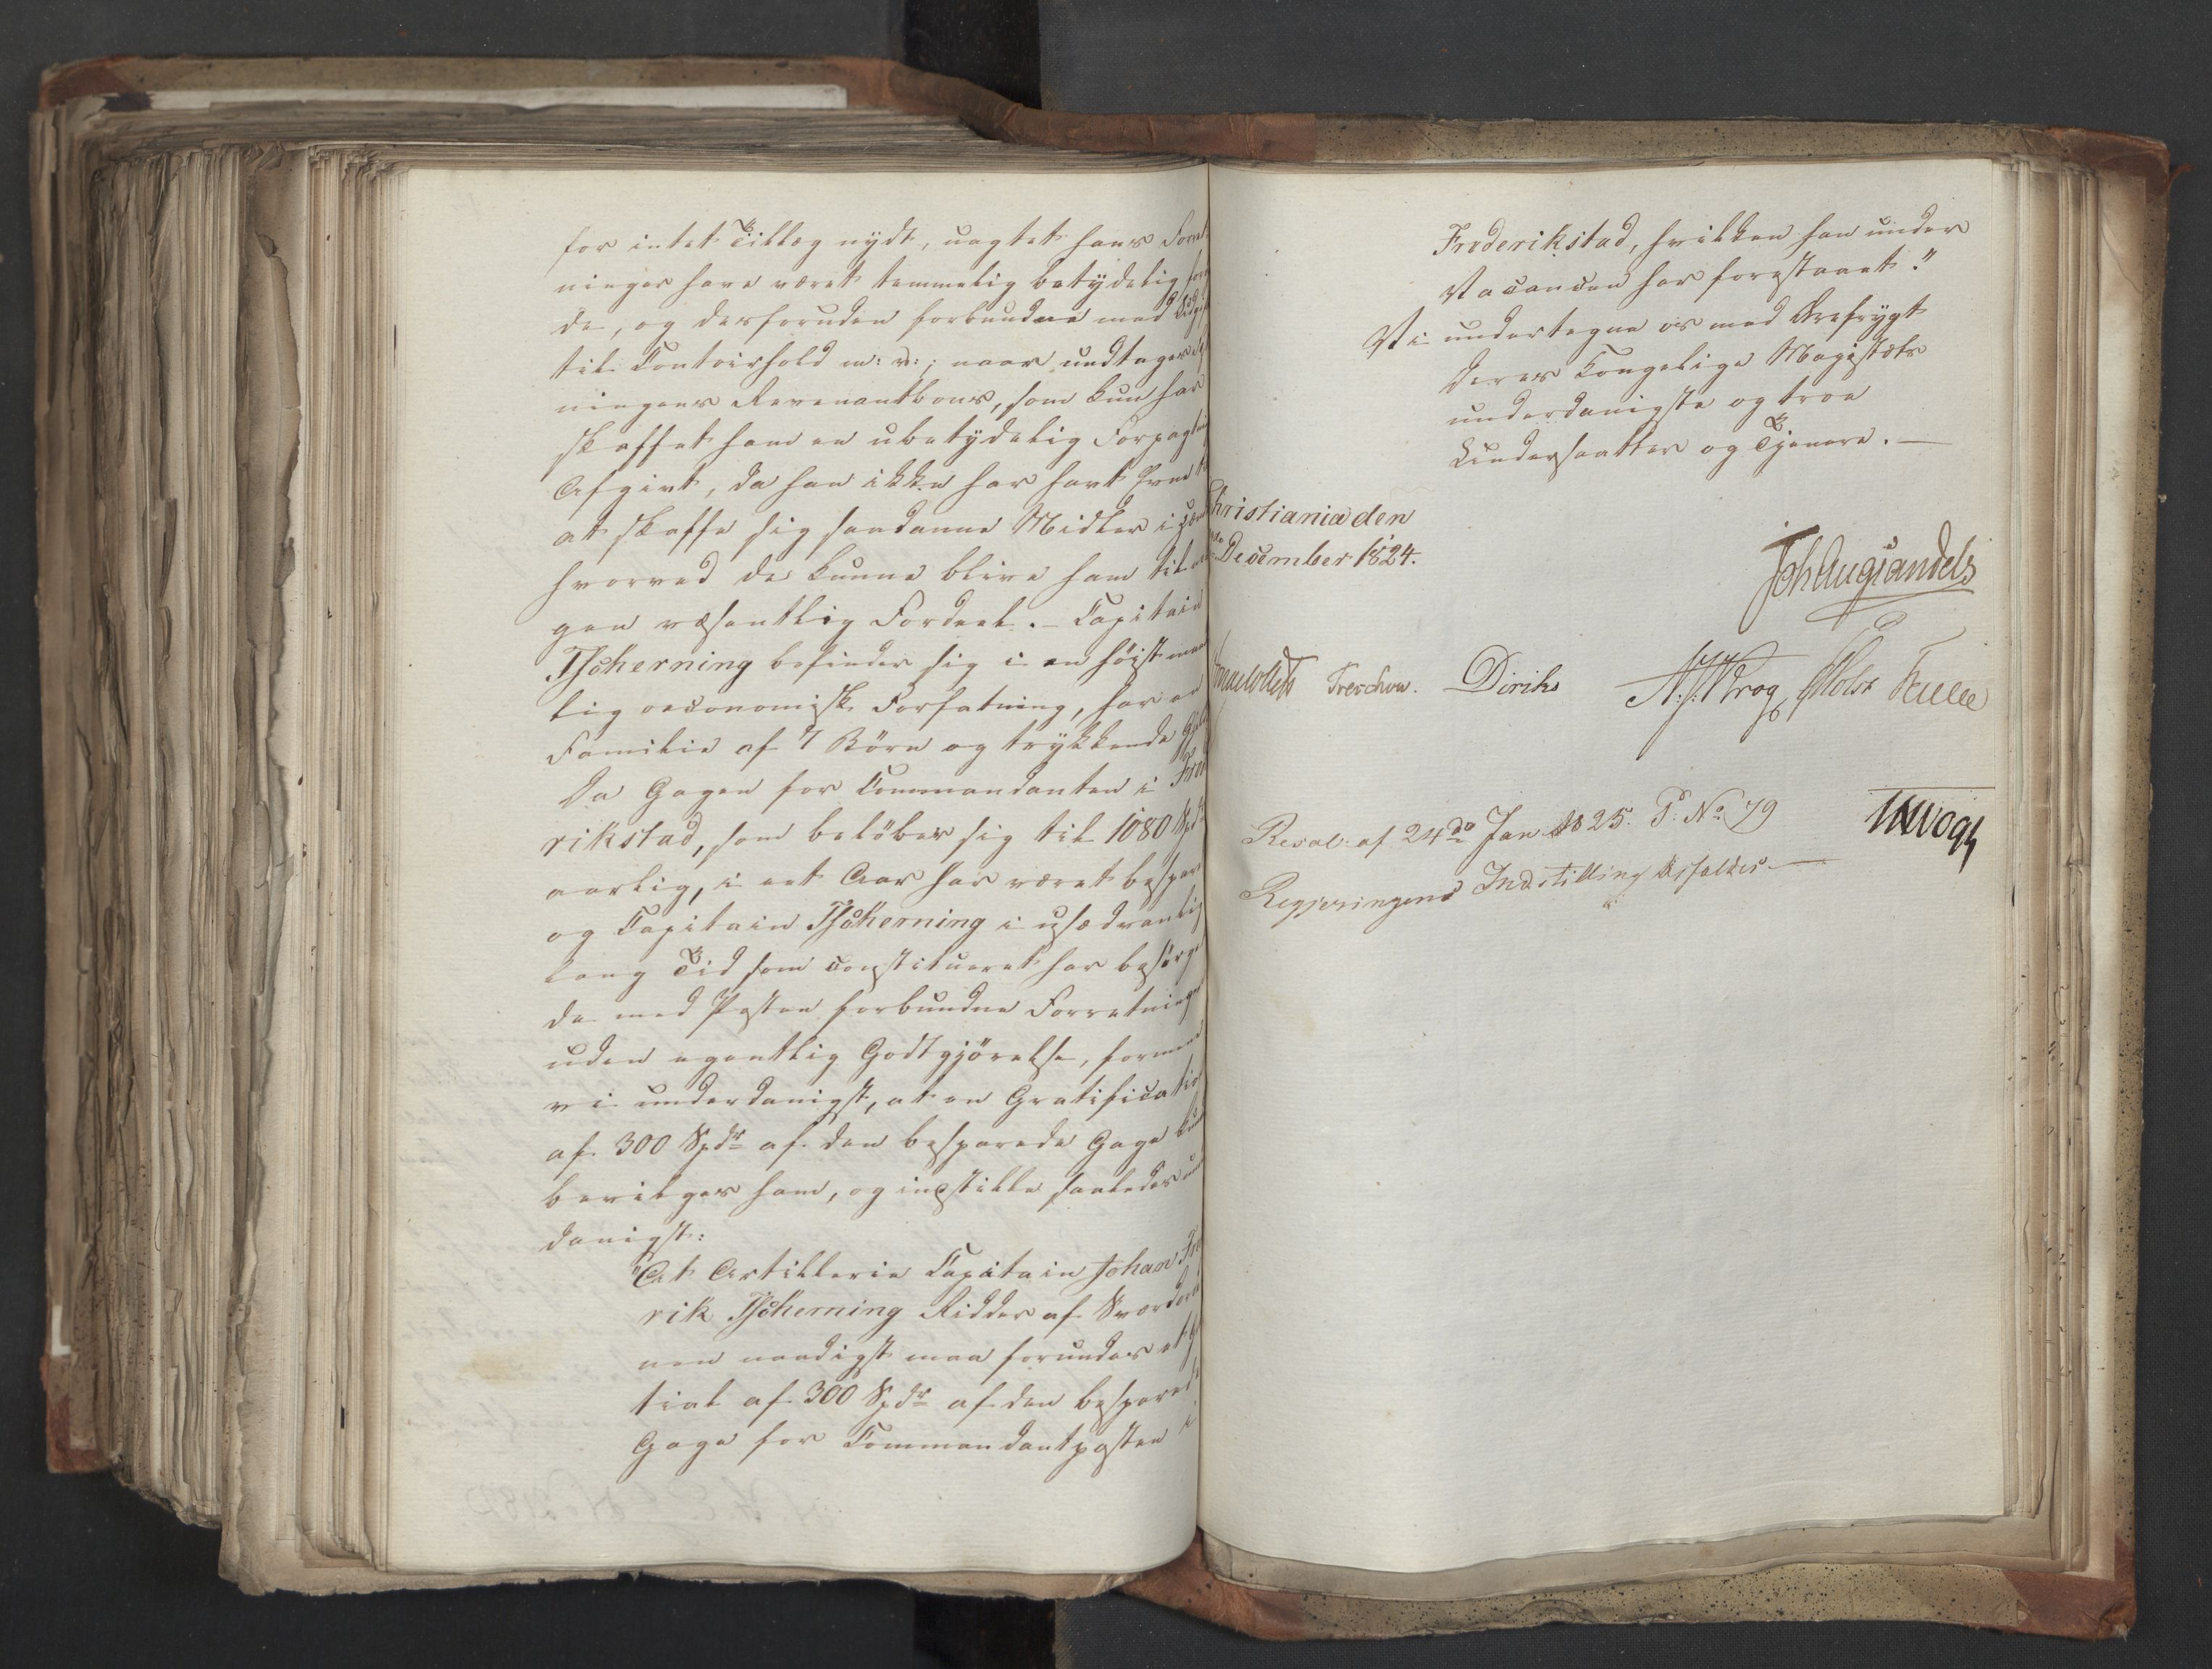 for intet Tillæg nydt, uagtet hans Forret
ninger have været temmelig betydelig
de, og desforuden forbundne med Udgift
til Contoirhold m: v:; naar undtages
ningens Revenantbous, som kun har
skaffet ham en ubetydelig Forpagtnings
Afgivt, da han ikke har havt Evne
at skaffe sig saadanne Midler i
hvorved de kunne blive ham til
gen væsentlig Fordeel. – Capitain
Tscherning befinder sig i en høist
lig oeconomisk Forfatning, har en
Familie af 7 Börn og trykkende Gjeld
Da Gagen for Commandanten i Fred
rikstad, som belöber sig til 1080 Spdr
aarlig, i eet Aar har været bespar
og Capitain Tscherning i usædvanlig
lang Tid som constitueret har besörget
de med Posten forbundne Forretninger
uden egentlig Godtgjörelse, formene
vi underdanigst, at en Gratification
af 300 Spdr af den besparede Gage kun
bevilges ham, og indstille saaledes un
danigst:
"At Artillerie Capitain Johan Fre
rik Tscherning Ridder af Sværdord
nen naadigst maa forundes et
tial af 300 Spdr af den besparede
Gage for Commandantposten i
Frederikstad, hvilken han under
Vacancen har forestaaet."
Vi undertegne os med Ærefrygt
Deres Kongelige Majestæts
underdanigste og troe
Undersaatter og Tjenere. —
Christiania den
December 1824.
Joh Aug Sandels
Treschow. Diriks N. J. Krog Holst
Resol: af 24de Jan 1825. P. No 79
Regjeringens Indstilling bifaldes —